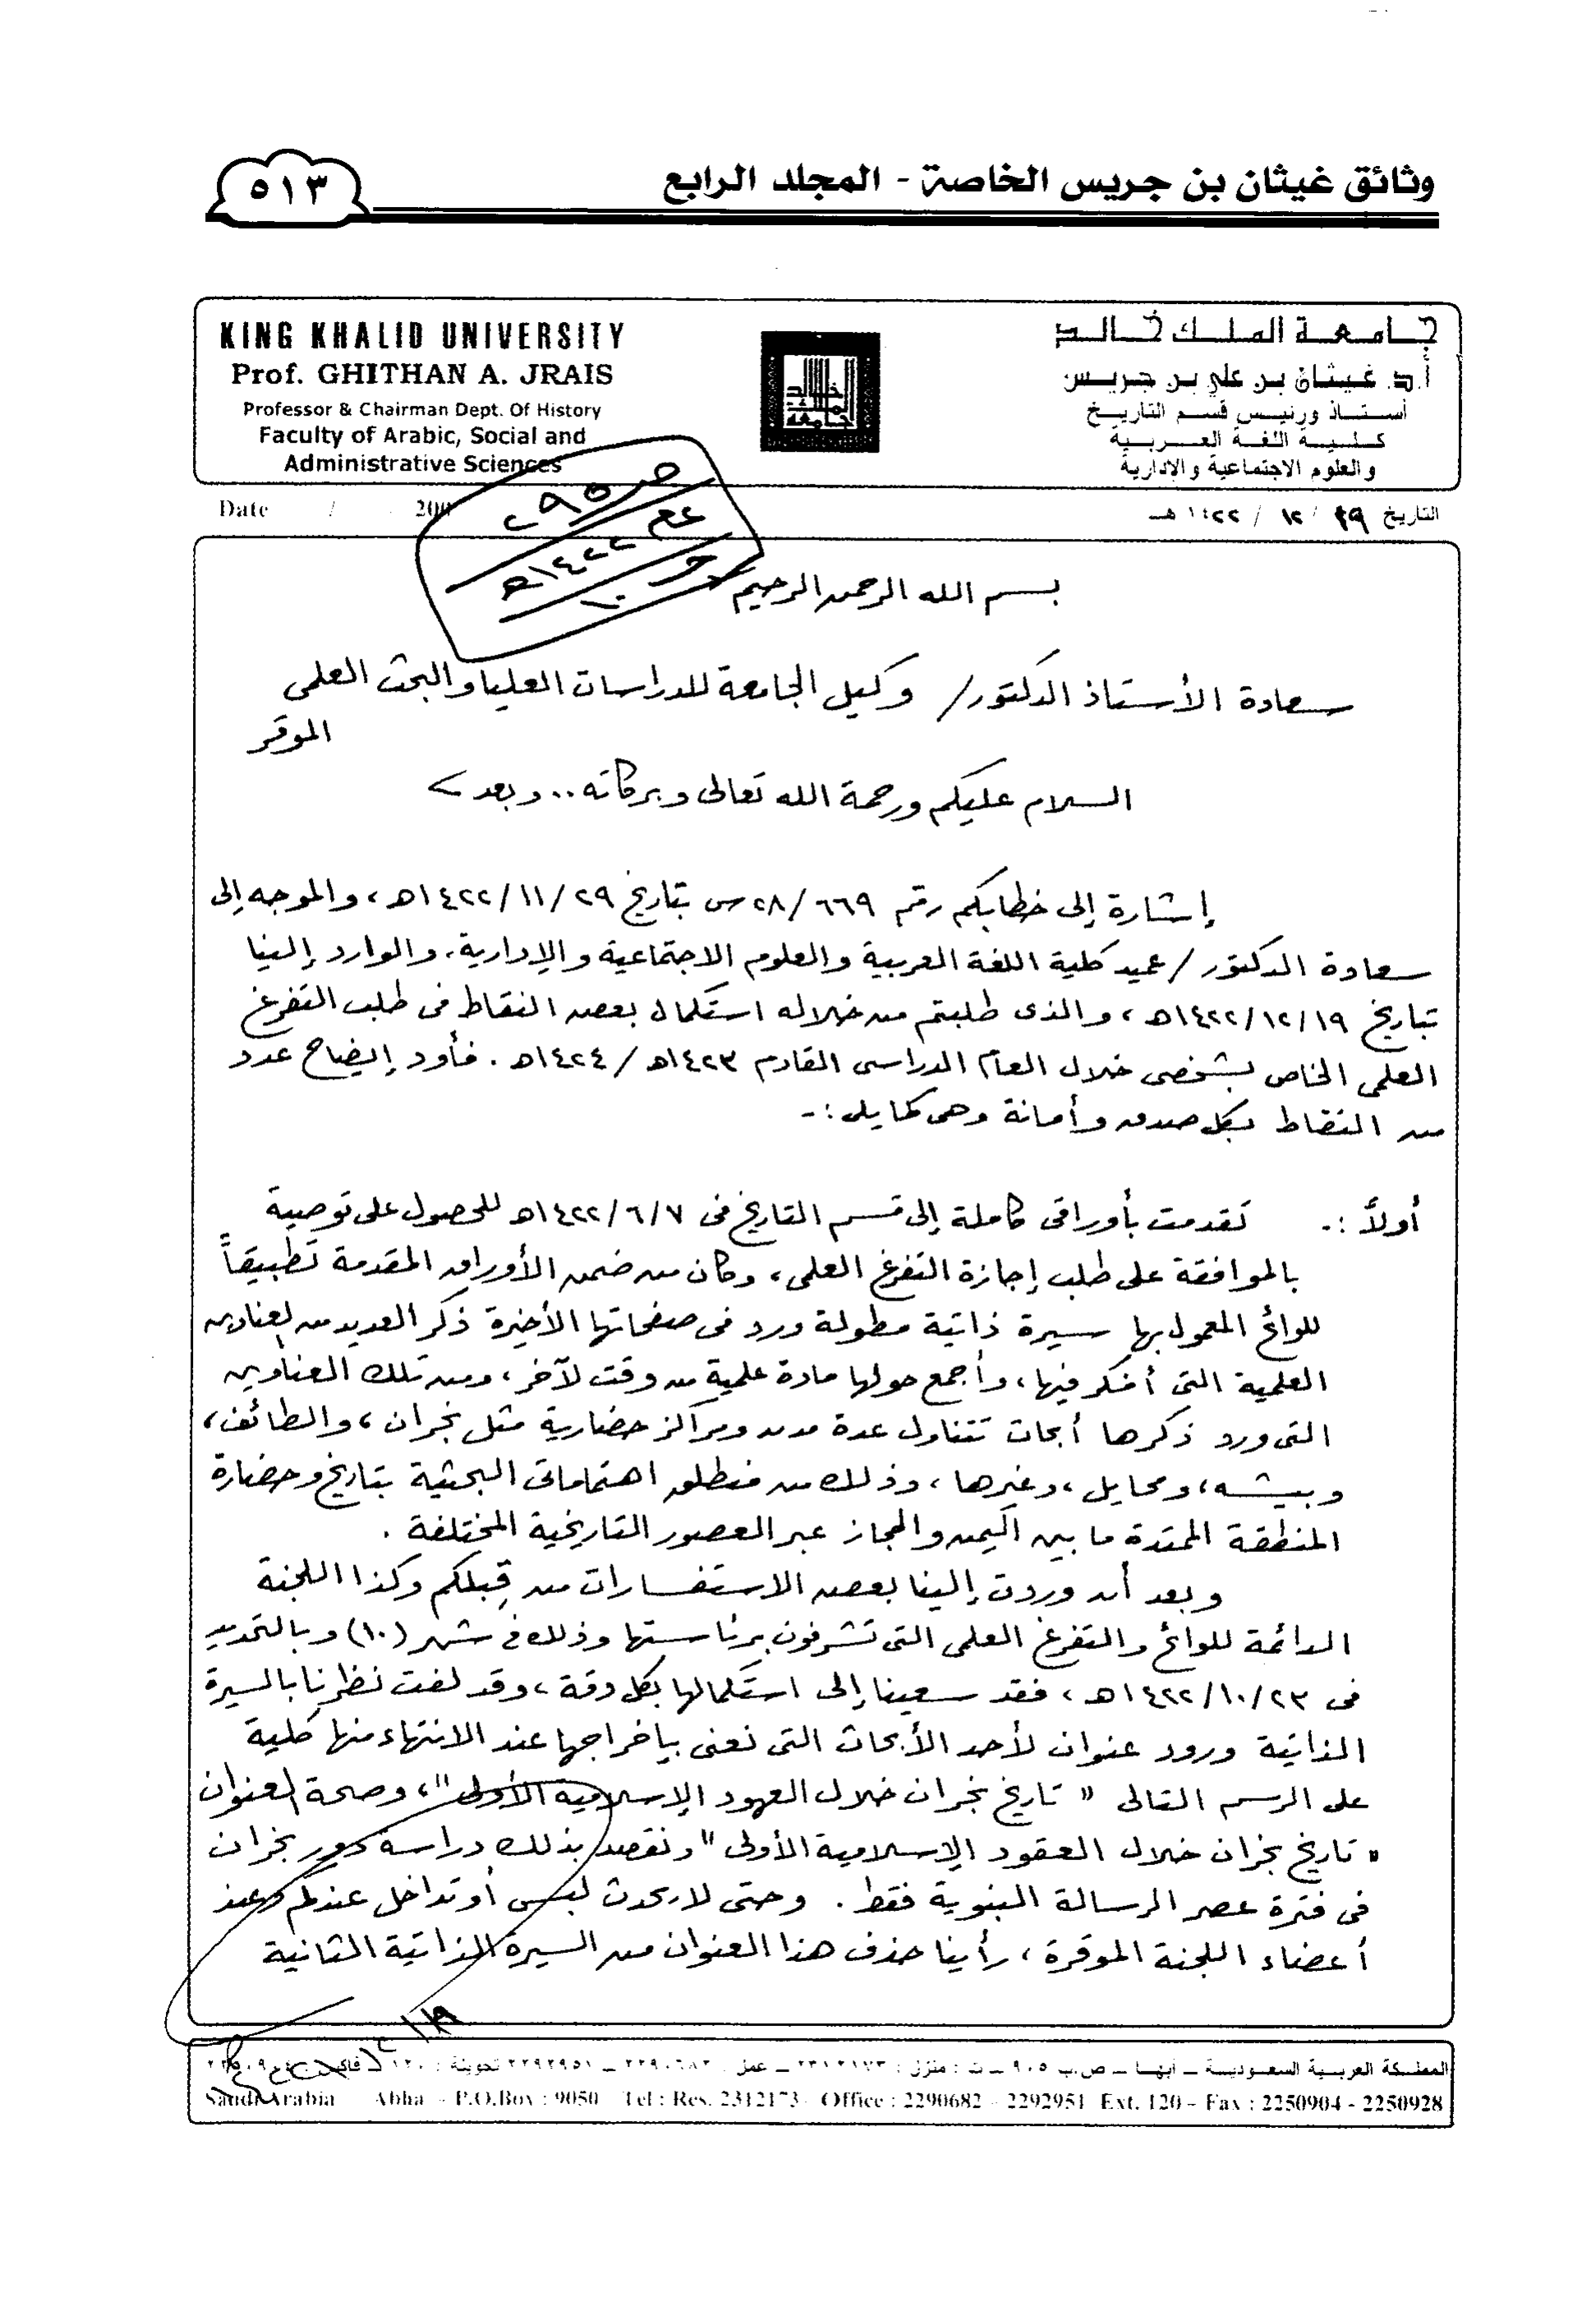 وثائق غيثان بن جريس الخاصة - المجلد الرابع
٥١٣
KING KHALID UNIVERSITY
Prof. GHITHAN A. JRAIS
Professor & Chairman Dept. Of History
Faculty of Arabic, Social and
Administrative Sciences
جامعة الملك خالد
أ.د. غيثان بن علي بن جريس
أستاذ ورئيس قسم التاريخ
كلية اللغة العربية
والعلوم الاجتماعية والإدارية
Date / 200
التاريخ ١٩ / ١٢ / ١٤٢٢هـ
ص ٢٩٥
١٤٢٢هـ
و ١٠
بسم الله الرحمن الرحيم
سعادة الأستاذ الدكتور/ وكيل الجامعة للدراسات العليا والبحث العلمى
الموقر
السلام عليكم ورحمة الله تعالى وبركاته.. وبعد>
إشارة إلى خطابكم رقم ٢٨/٦٦٩س بتاريخ ١٤٢٢/١١/٢٩هـ، والموجه إلى
سعادة الدكتور/ عميد كلية اللغة العربية والعلوم الاجتماعية والإدارية، والوارد إلينا
بتاريخ ١٤٢٢/١٢/١٩هـ، والذى طلبتم من خلاله استكمال بعض النقاط فى طلب التفرغ
العلمى الخاص بشخصى خلال العام الدراسى القادم ١٤٢٣هـ/١٤٢٤هـ. فأود إيضاح عدد
من النقاط بكل صدق وأمانة وهى كما يلى:-
أولاً :- تقدمت بأوراقى كاملة إلى قسم التاريخ فى ١٤٢٢/٦/٧هـ للحصول على توصية
بالموافقة على طلب إجازة التفرغ العلمى، وكان من ضمن الأوراق المقدمة تطبيقاً
للوائح المعمول بها سيرة ذاتية مطولة ورد فى صفحاتها الأخيرة ذكر العديد من العناوين
العلمية التى أفكر فيها، وأجمع حولها مادة علمية من وقت لآخر، ومن تلك العناوين
التى ورد ذكرها أبحاث تتناول عدة مدن ومراكز حضارية مثل نجران، والطائف،
وبيشه، ومحايل، وغيرها، وذلك من منطلق اهتماماتى البحثية بتاريخ وحضارة
المنطقة الممتدة ما بين اليمن والحجاز عبر العصور التاريخية المختلفة.
وبعد أن وردت إلينا بعض الاستفسارات من قِبلكم وكذا اللجنة
الدائمة للوائح والتفرغ العلمى التى تشرفون برئاستها وذلك فى شهر (١٠) وبالتحديد
فى ١٤٢٢/١٠/٢٣هـ، فقد سعينا إلى استكمالها بكل دقة، وقد لفت نظرنا بالسيرة
الذاتية ورود عنوان لأحد الأبحاث التى نعنى بإخراجها عند الانتهاء منها كلية
على الرسم التالى "تاريخ نجران خلال العهود الإسلامية الأولى"، وصحة العنوان
"تاريخ نجران خلال العقود الإسلامية الأولى" ونقصد بذلك دراسة دور نجران
فى فترة عصر الرسالة النبوية فقط. وحتى لا يحدث لبس أو تداخل عندكم وعند
أعضاء اللجنة الموقرة، رأينا حذف هذا العنوان من السيرة الذاتية الثانية
المملكة العربية السعودية – أبها – ص.ب ٩٠٥٠ – ت : منزل : ٢٣١٢١٧٣ – عمل : ٢٢٩٠٦٨٢ – ٢٢٩٢٩٥١ تحويلة : ١٢٠ – فاكس
Saudi Arabia Abha - P.O.Box : 9050 Tel : Res. 2312173 Office : 2290682 - 2292951 Ext. 120 - Fax : 2250904 - 2250928